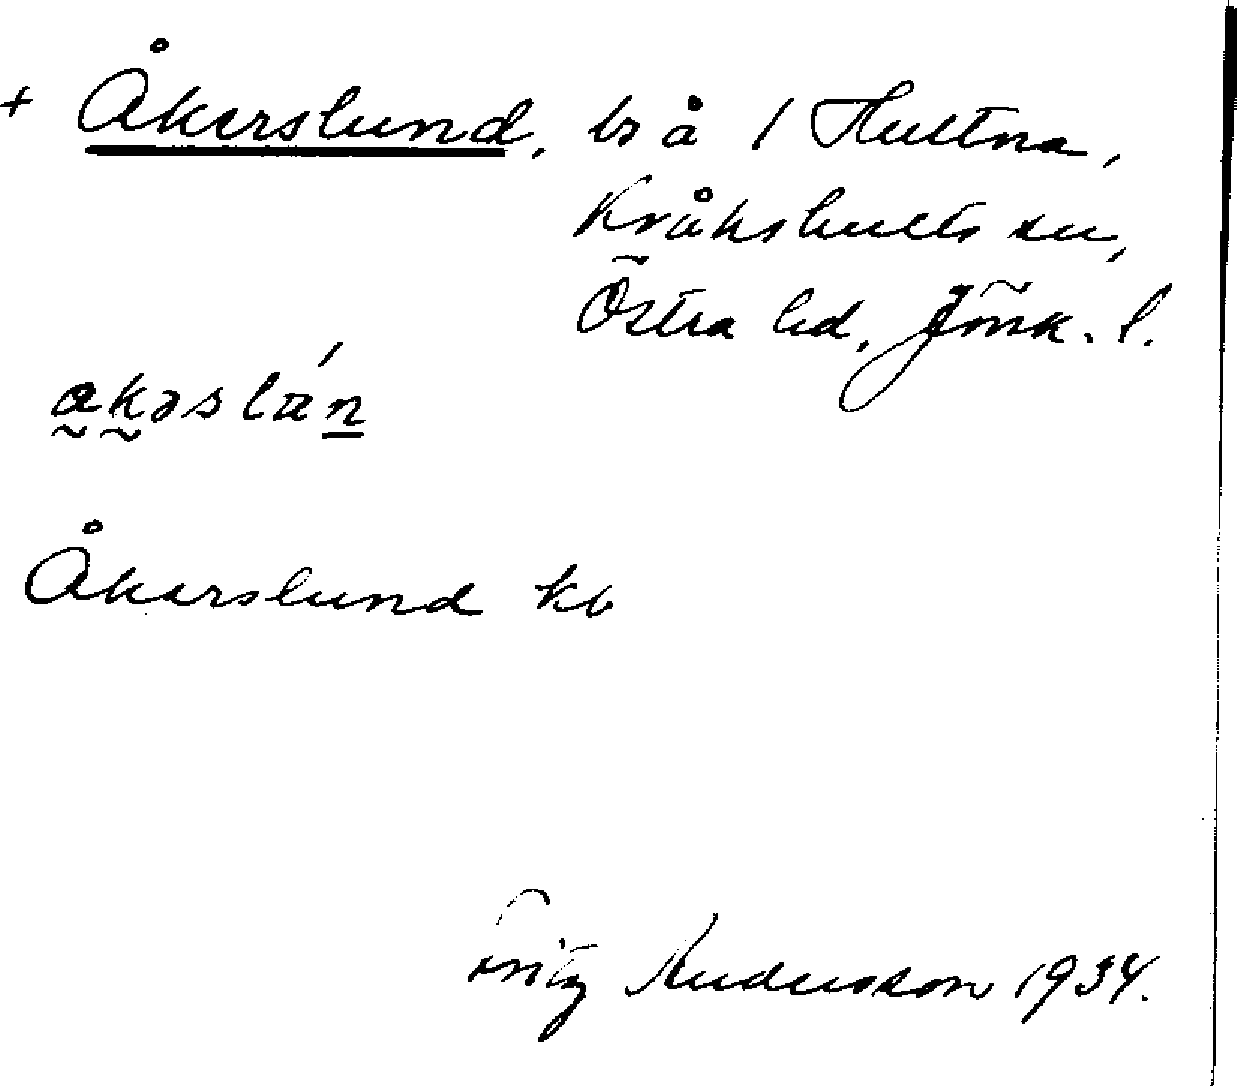 + Åkerslund, ts å 1 Hultna,
Kråkshults sn,
Östra hd, Jönk. l.
akəslán
Åkerslund kb
Fritz Andersson 1934.